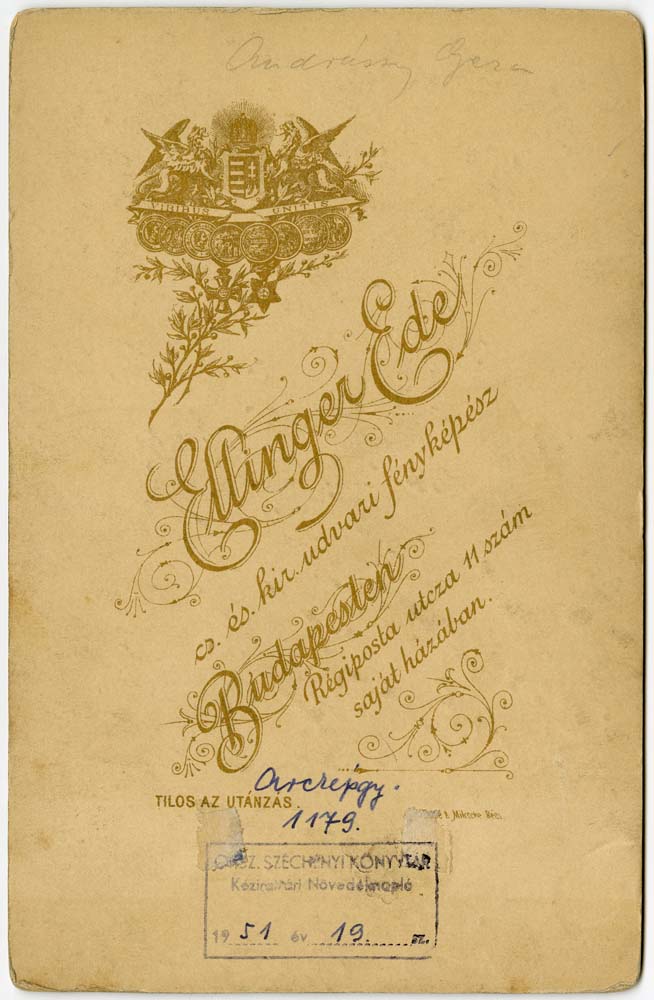 Andrássy Geza
VIRIBUS UNITIS
Ellinger Ede
cs. és. kir. udvari fényképész
Budapesten
Régiposta utcza 11 szám
saját házában.
TILOS AZ UTÁNZÁS.
Arcképgy.
1179.
ORSZ. SZÉCHÉNYI KÖNYVTÁR
Kézirattári Növedéknapló
1951 év 19.